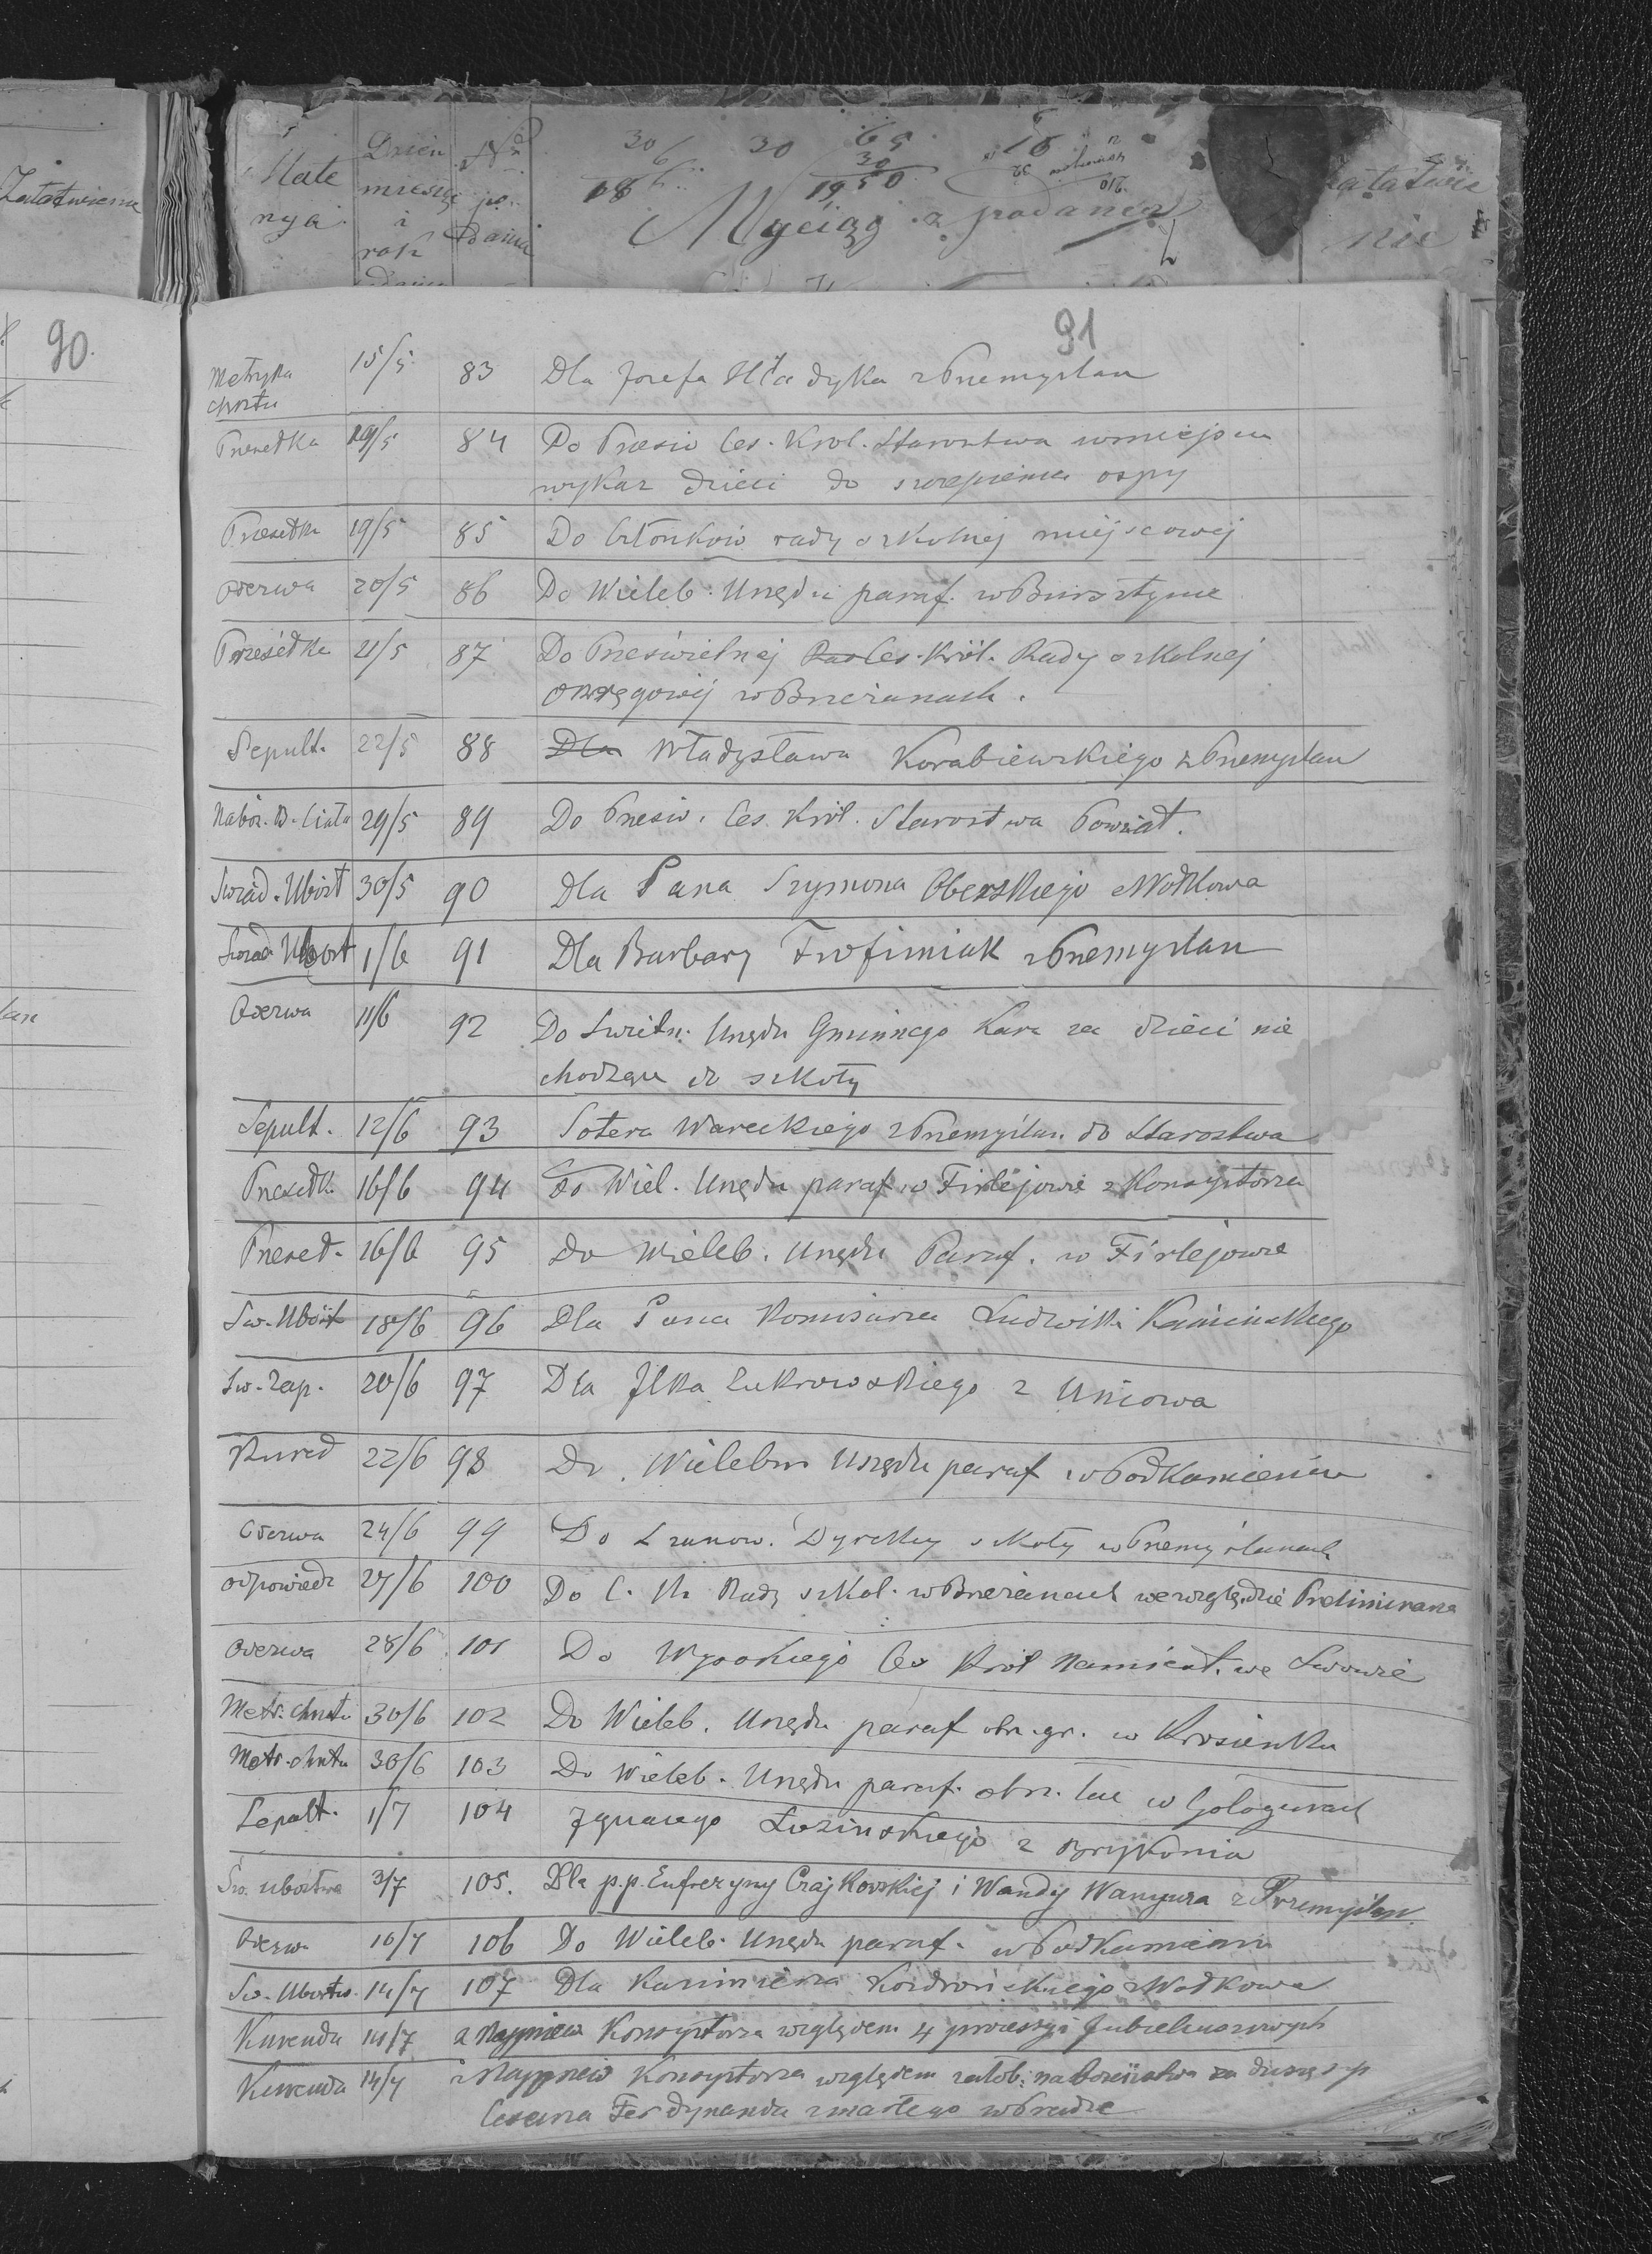 Załatwienie
Mate
ryja
Dzień
miesiąc
i
rok
Nr
po-
dania
30
6
186
30
65
30
1950
Wyciąg z podania
atatwie
nie
90.
91
Metryka chrztu 15/5 83 Dla Jozefa Hładyka z Przemyslan
Przesetka 19/5 84 Do Przesw Ces. Krol. Starostwa w miejscu
wykaz dzieci do szczepienia ospy
Przesetka 19/5 85 Do Członków rady szkolnej miejscowej
Odezwa 20/5 86 Do Wieleb. Urzędu paraf. w Bursztynie
Przesétka 21/5 87 Do Prześwietnej Ces. Król. Rady szkolnej
okręgowéj w Brzeżanach.
Sepult. 22/5 88 Dla Władysława Korabiewskiego z Przemyslan
Naboż. B. Ciała 29/5 89 Do Przesw. Ces. Król. Starostwa Powiat.
Swiad. Ubóst 30/5 90 Dla Pana Szymona Oberskiego z Wołkowa
Swiad Ubost 1/6 91 Dla Barbary Trofimiak z Przemyslan
Odezwa 11/6 92 Do Swietn. Urzędu Gminnego Kara za dzieci nie
chodzące do szkoły
Sepult. 12/6 93 Sotera Wareckiego z Przemyślan do Starostwa
Przesetk. 16/6 94 Do Wiel. Urzędu paraf. w Firlejowie z Konsystorza
Przeset. 16/6 95 Do Wieleb. Urzędu Paraf. w Firlejowie
Sw. Ubóst 18/6 96 Dla Pana Komisarza Ludwika Kamińskiego
Sw. Zap. 20/6 97 Dla Ilka Cukrowskiego z Uniowa
22/6 98 Do Wielebn Urzędu paraf w Podkamieniu
Odezwa 24/6 99 Do Szanow. Dyrekcy szkoły w Przemyślanach
Odpowiedz 27/6 100 Do C. K. Rady szkol. w Brzeżanach we względzie Preliminarza
Odezwa 28/6 101 Do Wysokiego Ces Król Namiest. we Lwowie
Metr. chrztu 30/6 102 Do Wieleb. Urzędu paraf obr. gr. w Krosienku
Metr. chrztu 30/6 103 Do Wieleb. Urzędu paraf. obrz. łac w Gologórach
Sepult. 1/7 104 Ignacego Łozińskiego z Brykonia
Św. ubostwa 3/7 105. Dla p.p. Eufrozyny Czajkowskiej i Wandy Wanyura z Przemyślan.
Odezwa 10/7 106 Do Wieleb. Urzędu paraf. w Podkamieniu
Sw. Ubostw. 14/7 107 Dla Kazimierza z Wołkowa
Kurenda 14/7 z Konsystorza względem 4 procesyi Jubileuszowych
Kurenda 14/7 z Konsystorza względem żałob. nabożeństwa za duszę ś.p
Cesarza Ferdynanda zmarłego w Pradze